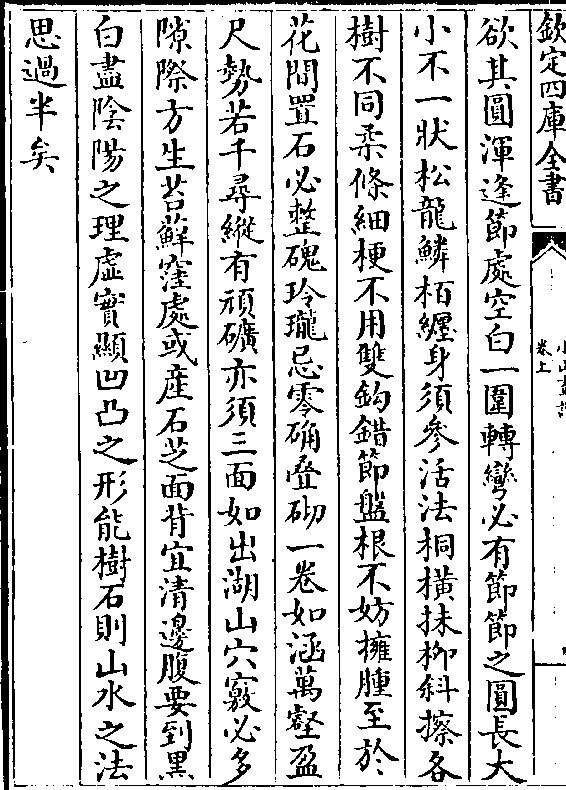 欽定四庫全書
小山畫譜
卷上
欲其圓渾逢節處空白一圍轉彎必有節節之圓長大
小不一狀松龍鱗柏纒身須參活法桐橫抹柳斜擦各
樹不同柔條細梗不用雙鈎錯節盤根不妨擁腫至於
花間置石必整磈玲瓏忌零确叠砌一卷如涵萬壑盈
尺勢若千尋縱有頑礦亦須三面如出湖山穴竅必多
隙際方生苔蘚窪處或産石芝面背宜清邊腹要到黑
白盡陰陽之理虛實顯凹凸之形能樹石則山水之法
思過半矣